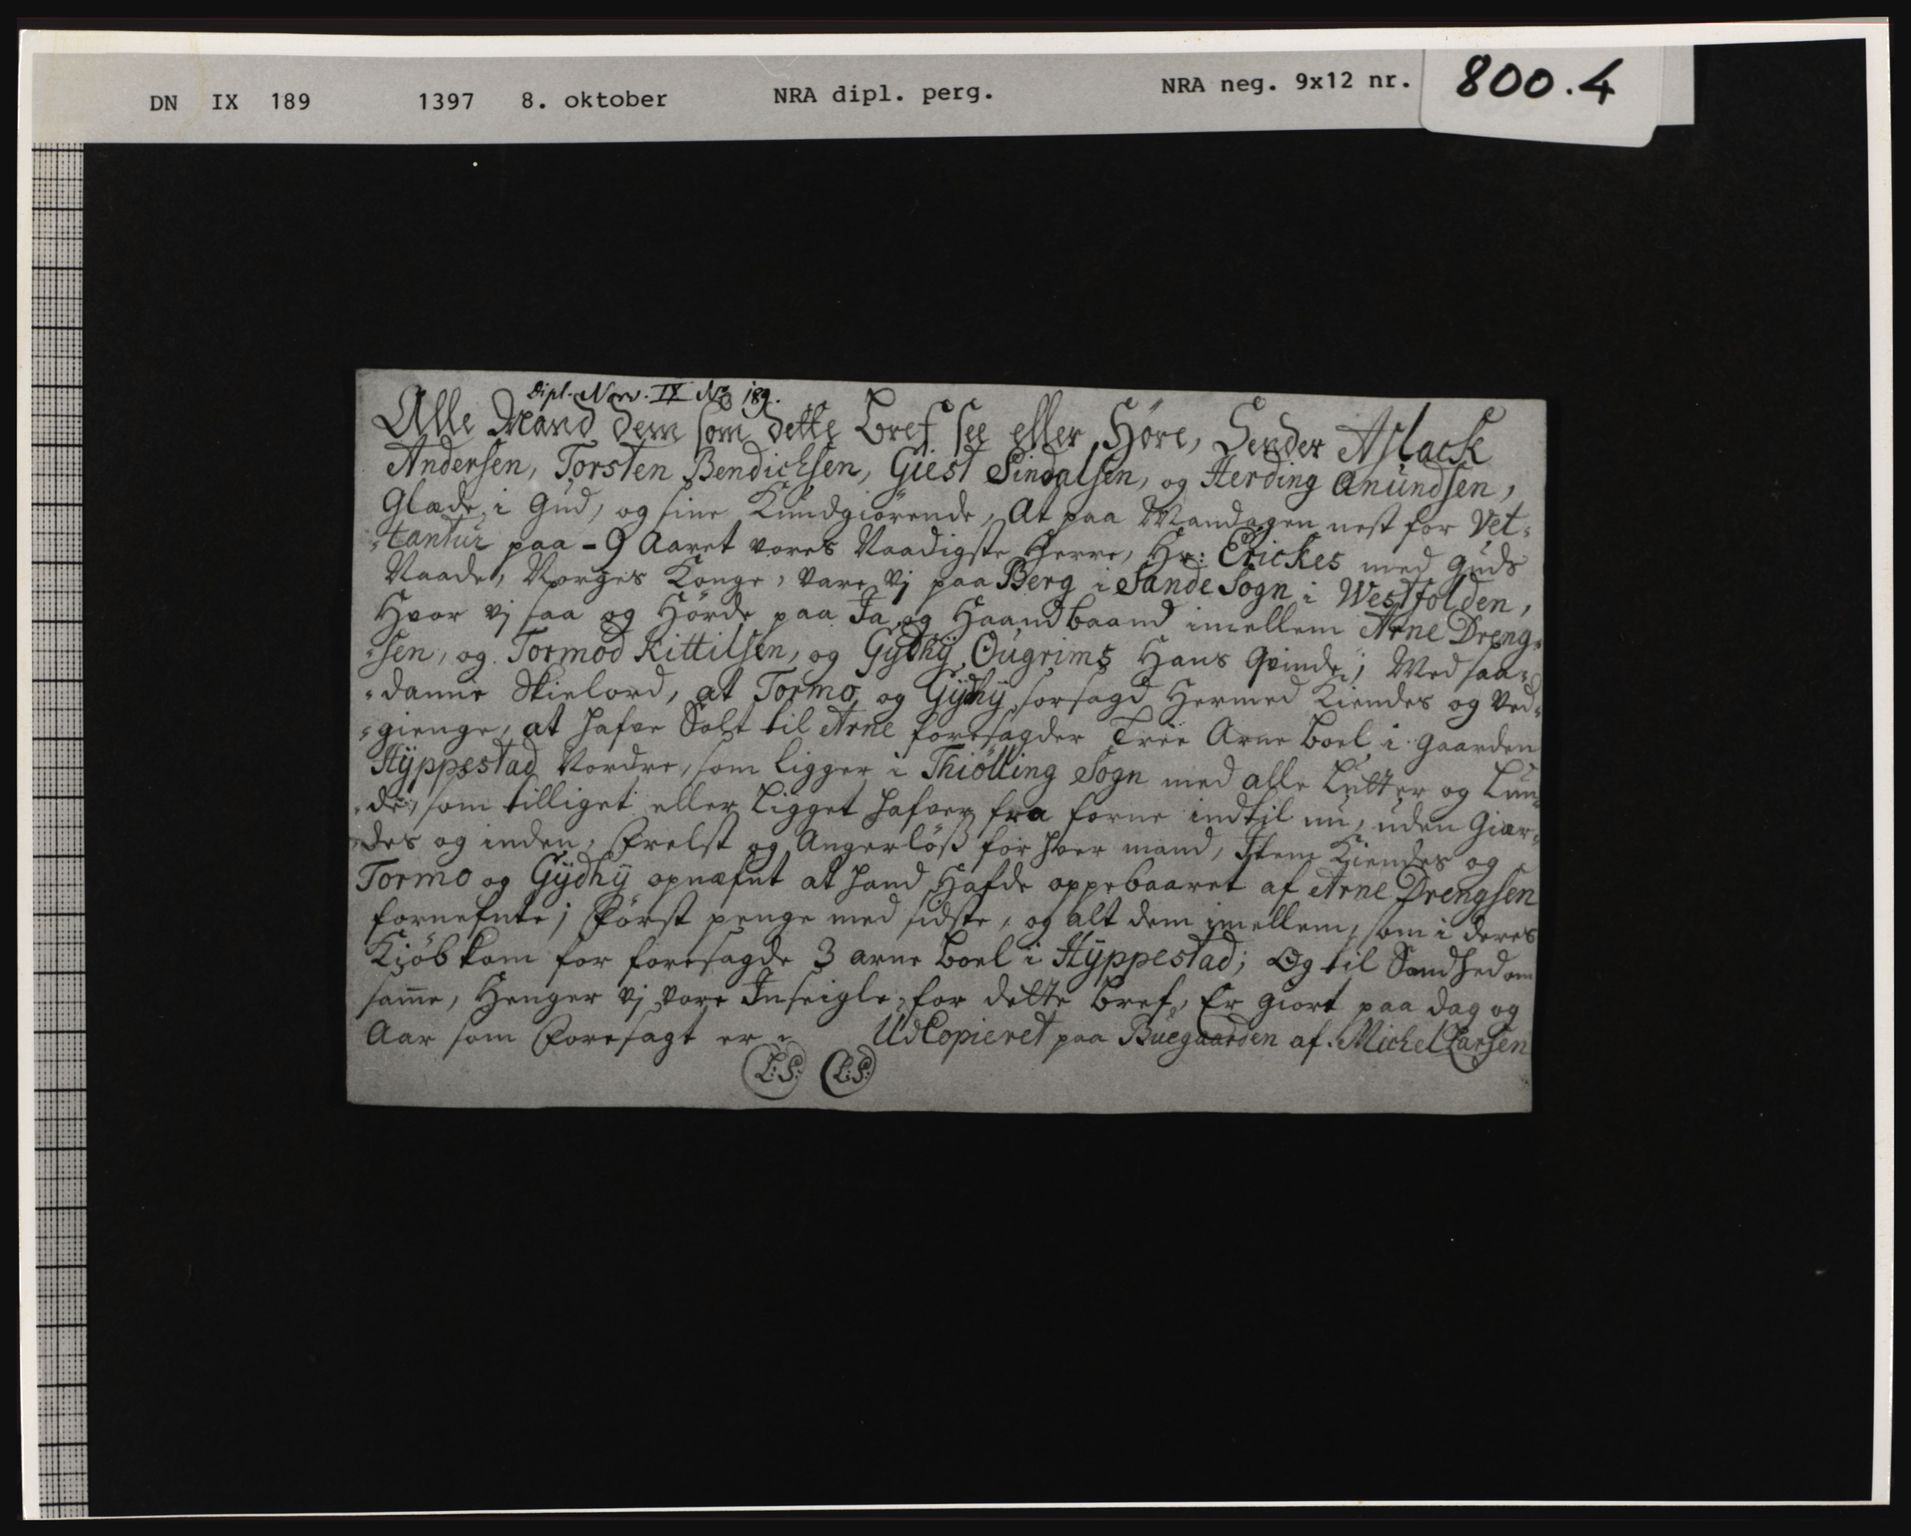 DN IX 189 1397 8. oktober NRA dipl. perg. NRA neg. 9x12 nr. 800.4
Dipl. Norv. IX No 189.
Alle Mand dem som dette bref see eller Höre, Sender Aslack
Andersen, Torsten Bendichsen, Giest Sindalsen, og Herding Anundsen,
Glæde i Gud, og sine Kundgiörende, At paa Mandagen nest for Vet-
-tantur paa - 9 Aaret vores Naadigste Herre, Hr: Erickes med Guds
Naade, Norges Konge, vare vj paa Berg i Sande Sogn i Westfolden,
Hvor vj saa og Hörde paa Ja og Haandbaand imellem Arne Dreng-
-sen, og Tormod Kittilsen, og Gydhÿ Ougrims Hans Qvinde; Med saa-
-danne Skielord, at Tormo og Gÿdhÿ forsagd Hermed Kiendes og ved-
-gienge, at hafve Solt til Arne foresagder Trée Arne boel i gaarden
Hÿppestad Nordre, som ligger i Thiölling Sogn med alle Lutter og Lun-
-de, som tilliget eller Ligget hafver fra forne indtil nu, uden Giær-
-des og inden, frelst og Angerlöß for hver mand, Item Kiendes og
Tormo og Gÿdhÿ opnæfnt at hand Hafde oppebaaret af Arne Drengsen
fornefnte; Först penge med sidste, og alt dem imellem, som i deres
Kiöb kom for foresagde 3 arne boel i Hÿppestad; Og til Sandhed om
samme, Henger vj vore Inseigle for dette bref, Er giort paa dag og
Aar som foresagt er. UdCopieret paa Buegaarden af Michel Larsen
L:S: L:S: